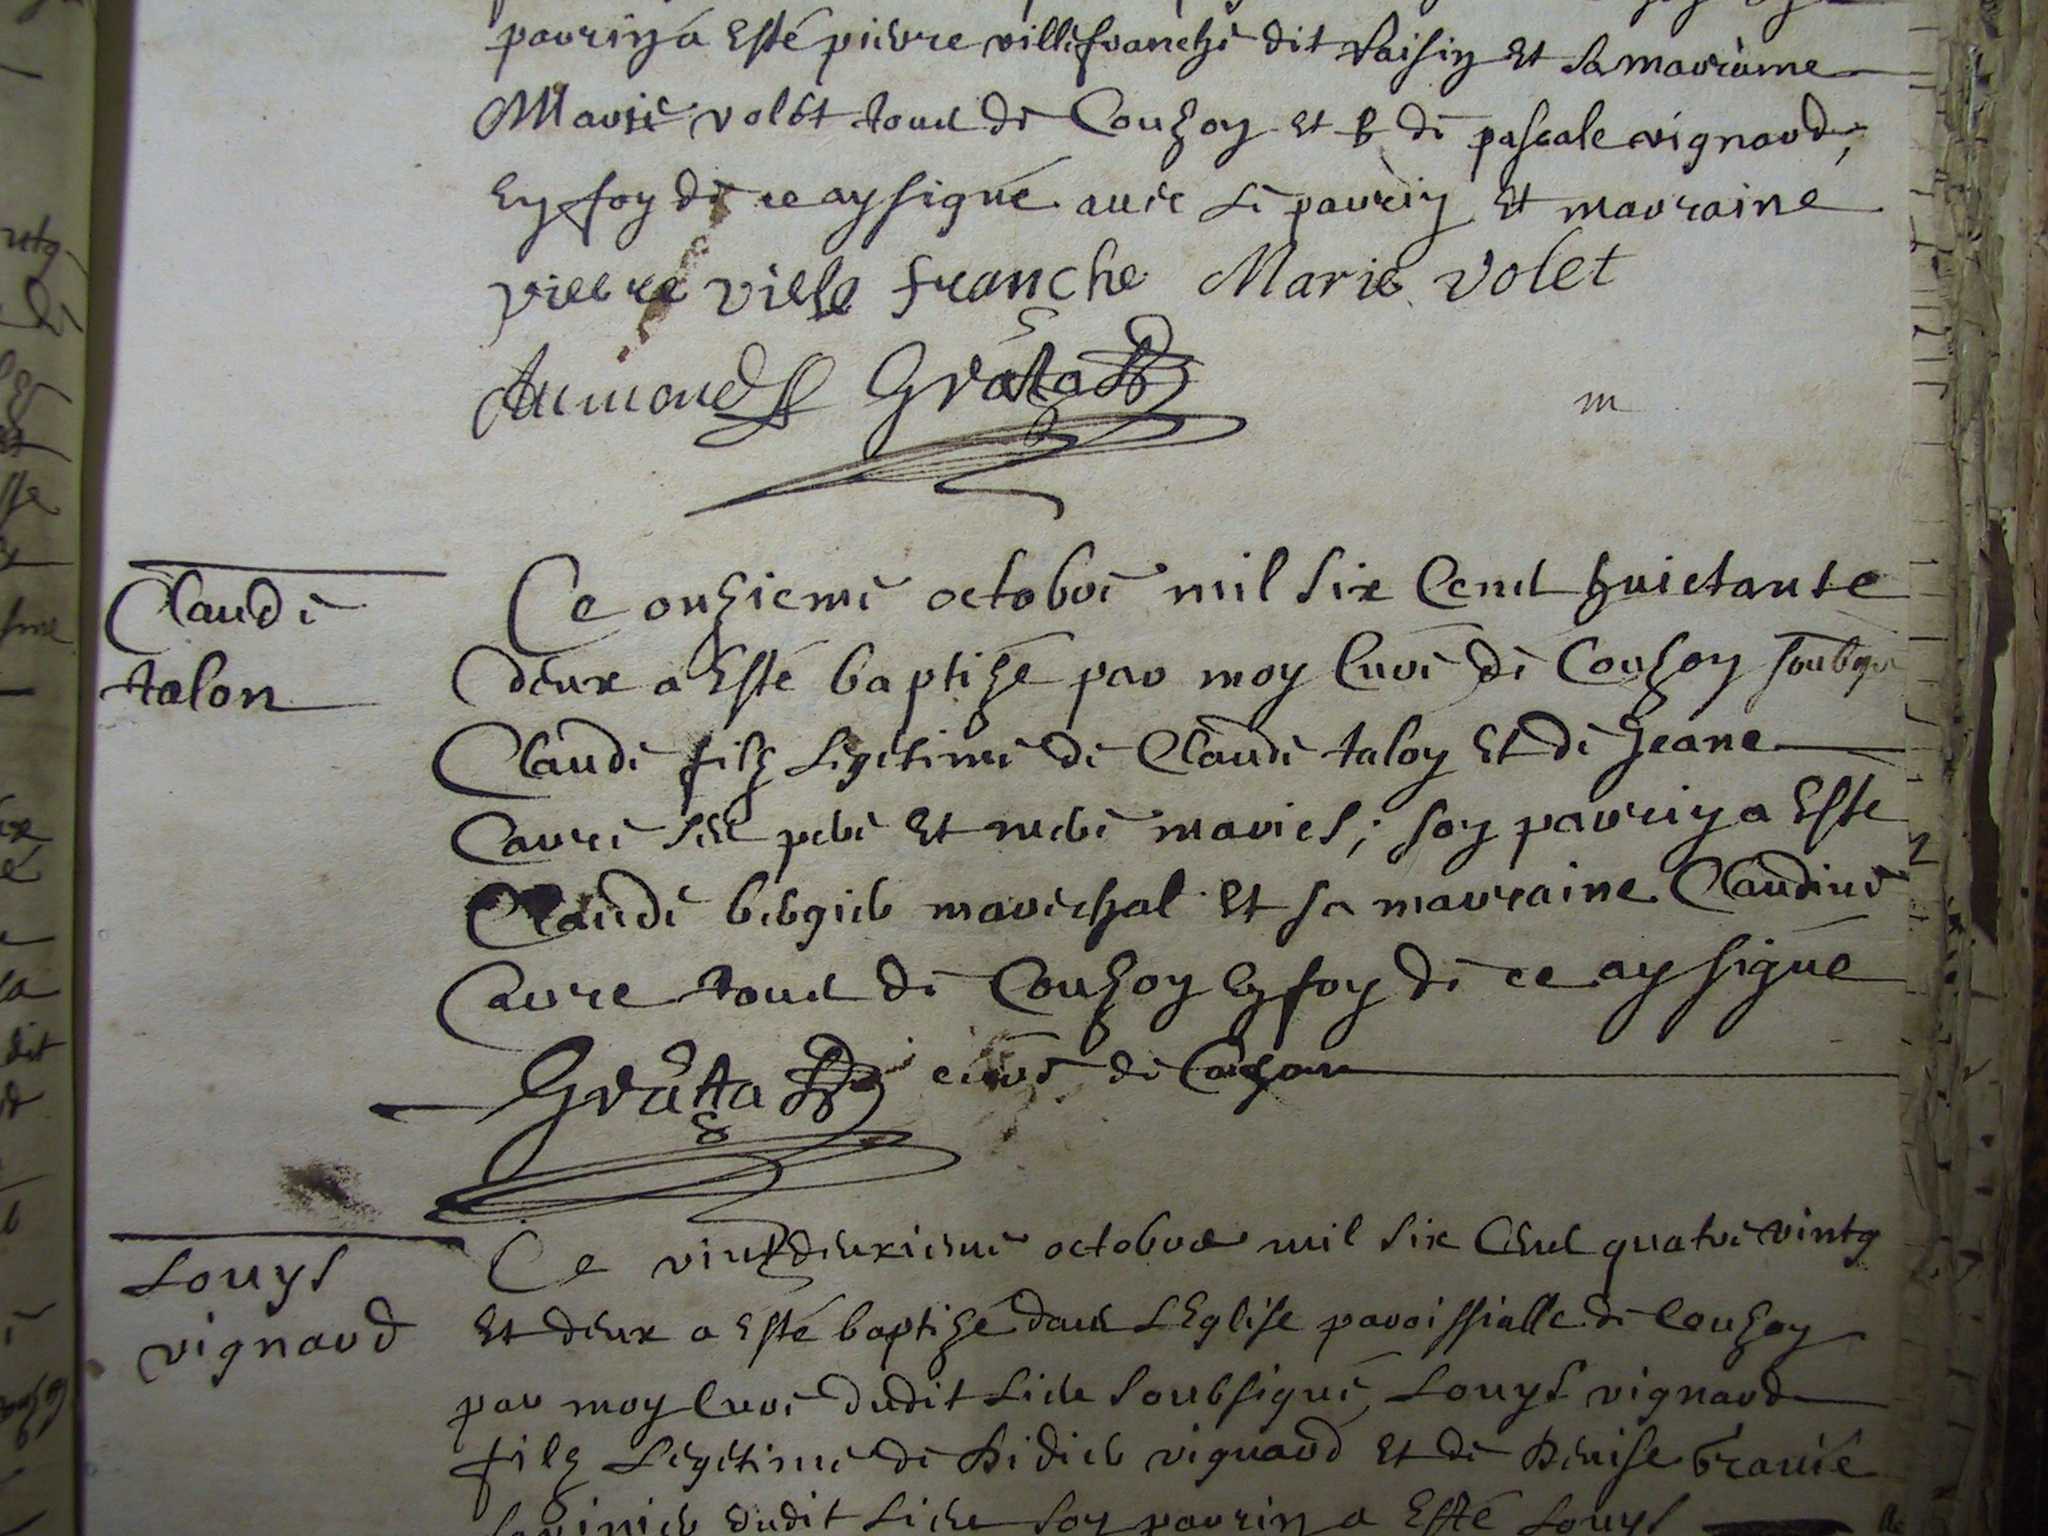 parrin a esté pierre villefranche dit Raisin et sa marraine
Marie volet tous de Couzon et b de pascale vignaud,
En foy de ce ay signé avec le parrin et marraine
pierre ville franche Marie Volet
Aimond Gratta
Claude
talon
Ce onzieme octobre mil six Cent huictante
deux a esté baptizé par moy Curé de Couzon soubsig
Claude filz Legitime de Claude talon et de Jeane
Carre ses pere et mere mariés; son parrin a esté
Claude bergier marechal et sa marraine Claudine
Carre tous de Couzon En foy de ce ay signé
Gratta curé de Couzon
Louys
vignaud
Ce vint deuxieme octobre mil six Cent quatre vintz
et deux a esté baptizé dans L'Eglise paroissialle de Couzon
par moy Curé dudit Lieu Soubsigné, Louys vignaud
filz Legitime de Didier vignaud et de Denise
dudit Lieu Son parrin a esté Louys